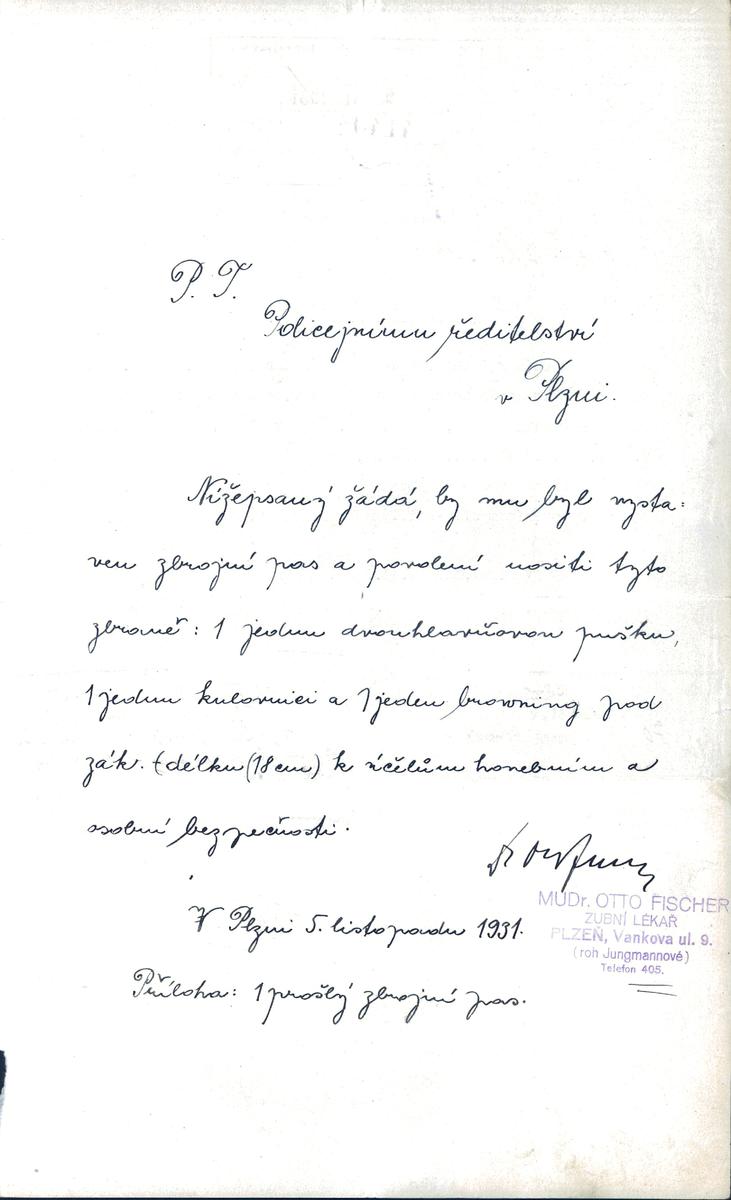 P. T.
Policejnímu ředitelství
v Plzni.
Nížepsaný žádá, by mu byl vysta:
ven zbrojní pas a povolení nositi tyto
zbraně: 1 jednu dvouhlavňovou pušku,
1 jednu kulovnici a 1 jeden browning pod
zák. délku (18 cm) k účelům honebním a
osobní bezpečnosti.
MUDr. OTTO FISCHER
ZUBNÍ LÉKAŘ
PLZEŇ, Vankova ul. 9.
(roh Jungmannové)
Telefon 405.
V Plzni 5. listopadu 1931.
Příloha: 1 prošlý zbrojní pas.